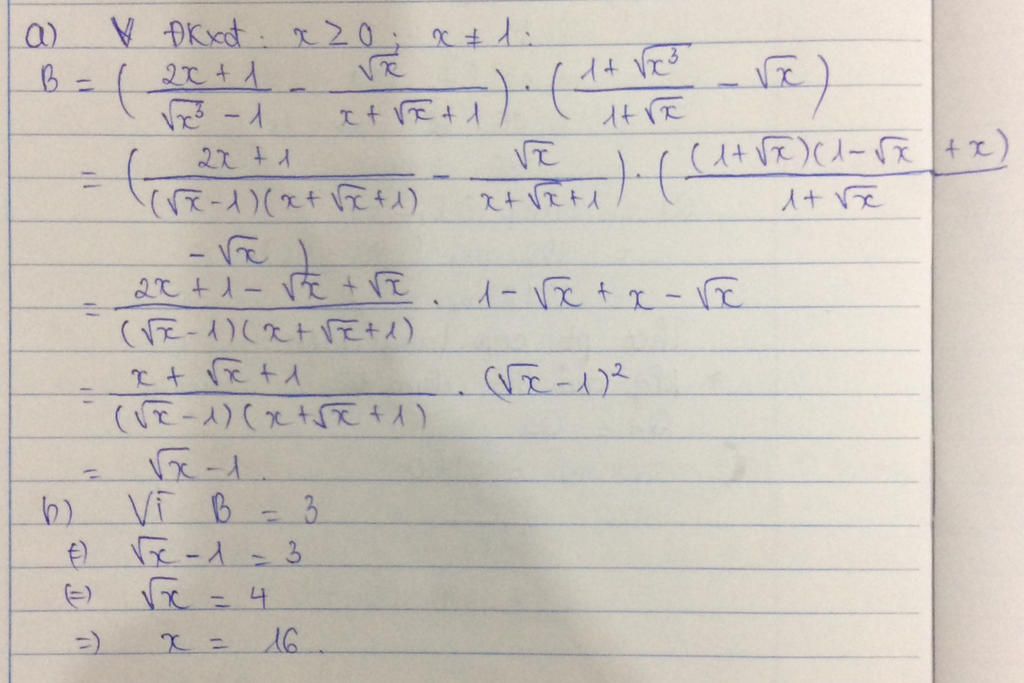 a) ∀ ĐKxđ: x ≥ 0; x ≠ 1:
B = ( (2x + 1)/(√x³ - 1) - √x/(x + √x + 1) ) . ( (1 + √x³)/(1 + √x) - √x )
= ( (2x + 1)/((√x - 1)(x + √x + 1)) - √x/(x + √x + 1) ) . ( (1 + √x)(1 - √x + x)/(1 + √x)
- √x )
= (2x + 1 - √x + √x)/((√x - 1)(x + √x + 1)) . 1 - √x + x - √x
= (x + √x + 1)/((√x - 1)(x + √x + 1)) . (√x - 1)²
= √x - 1.
b) Vì B = 3
(=) √x - 1 = 3
(=) √x = 4
=) x = 16.